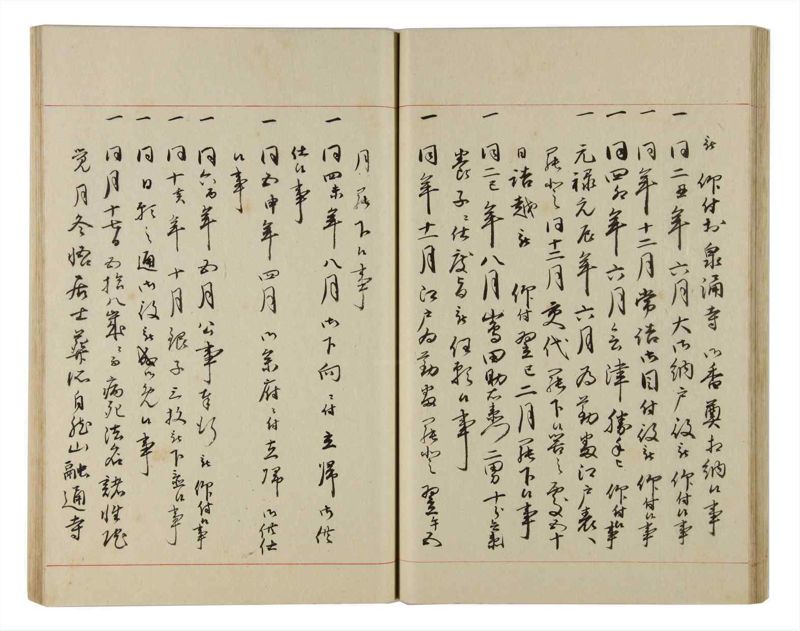 被 仰付於泉涌寺御香奠相納候事
一同二丑年六月大御納戸役被 仰付候事
一同年十二月常詰御目付役被 仰付候事
一同四卯年六月会津勝手ニ 仰付候事
元禄元辰年六月為勤番江戸表へ
罷登同十二月交代罷下候筈之処五十
日詰越被 仰付翌巳二月罷下候事
一同二巳年八月 田助右衛門二男十 
養子ニ仕度旨被任願候事
一同年十一月江戸為勤番罷登翌午五
月罷下候事
一同四未年八月御下向ニ付立帰御供
仕候事
一同五申年四月御参府ニ付立帰御供仕
候事
一同六 年五月公事奉行被 仰付候事
一同十亥年十月銀子三枚被下置候事
一同日願之通御役被成御免候事
一同月十 日五拾八歳ニ而病死法名
覚月冬悟居士葬所自 山融通寺